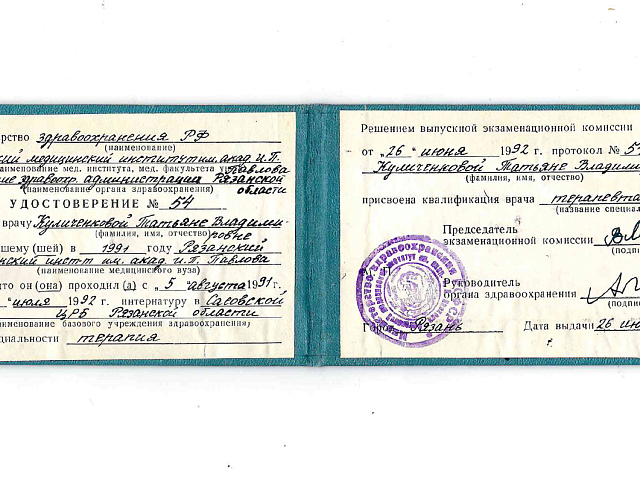 ерство здравоохранения РФ
(наименование)
кий медицинский институт им. акад. И.П.
аименование мед. института, мед. факультета у Павлова
ие здравоохр. администрации Рязанской
(наименование органа здравоохранения) области
УДОСТОВЕРЕНИЕ № 54
врачу Куличенковой Татьяне Владими-
(фамилия, имя, отчество) ровне
шему (шей) в 1991 году Рязанский
нский инст-т им. акад И.П. Павлова
(наименование медицинского вуза)
то он (она) проходил (а) с „5 августа 1991 г.
" июля 1992 г. интернатуру в Сасовской
ЦРБ Рязанской области
наименование базового учреждения здравоохранения)
циальности терапия
Решением выпускной экзаменационной комиссии
от „26" июня 1992 г. протокол № 5
Куличенковой Татьяне Владими
(фамилия, имя, отчество)
присвоена квалификация врача терапевта
(название специал
Председатель
экзаменационной комиссии
(подпи
М. П.
Руководитель
органа здравоохранения
(подпи
Город Рязань Дата выдачи 26 ию